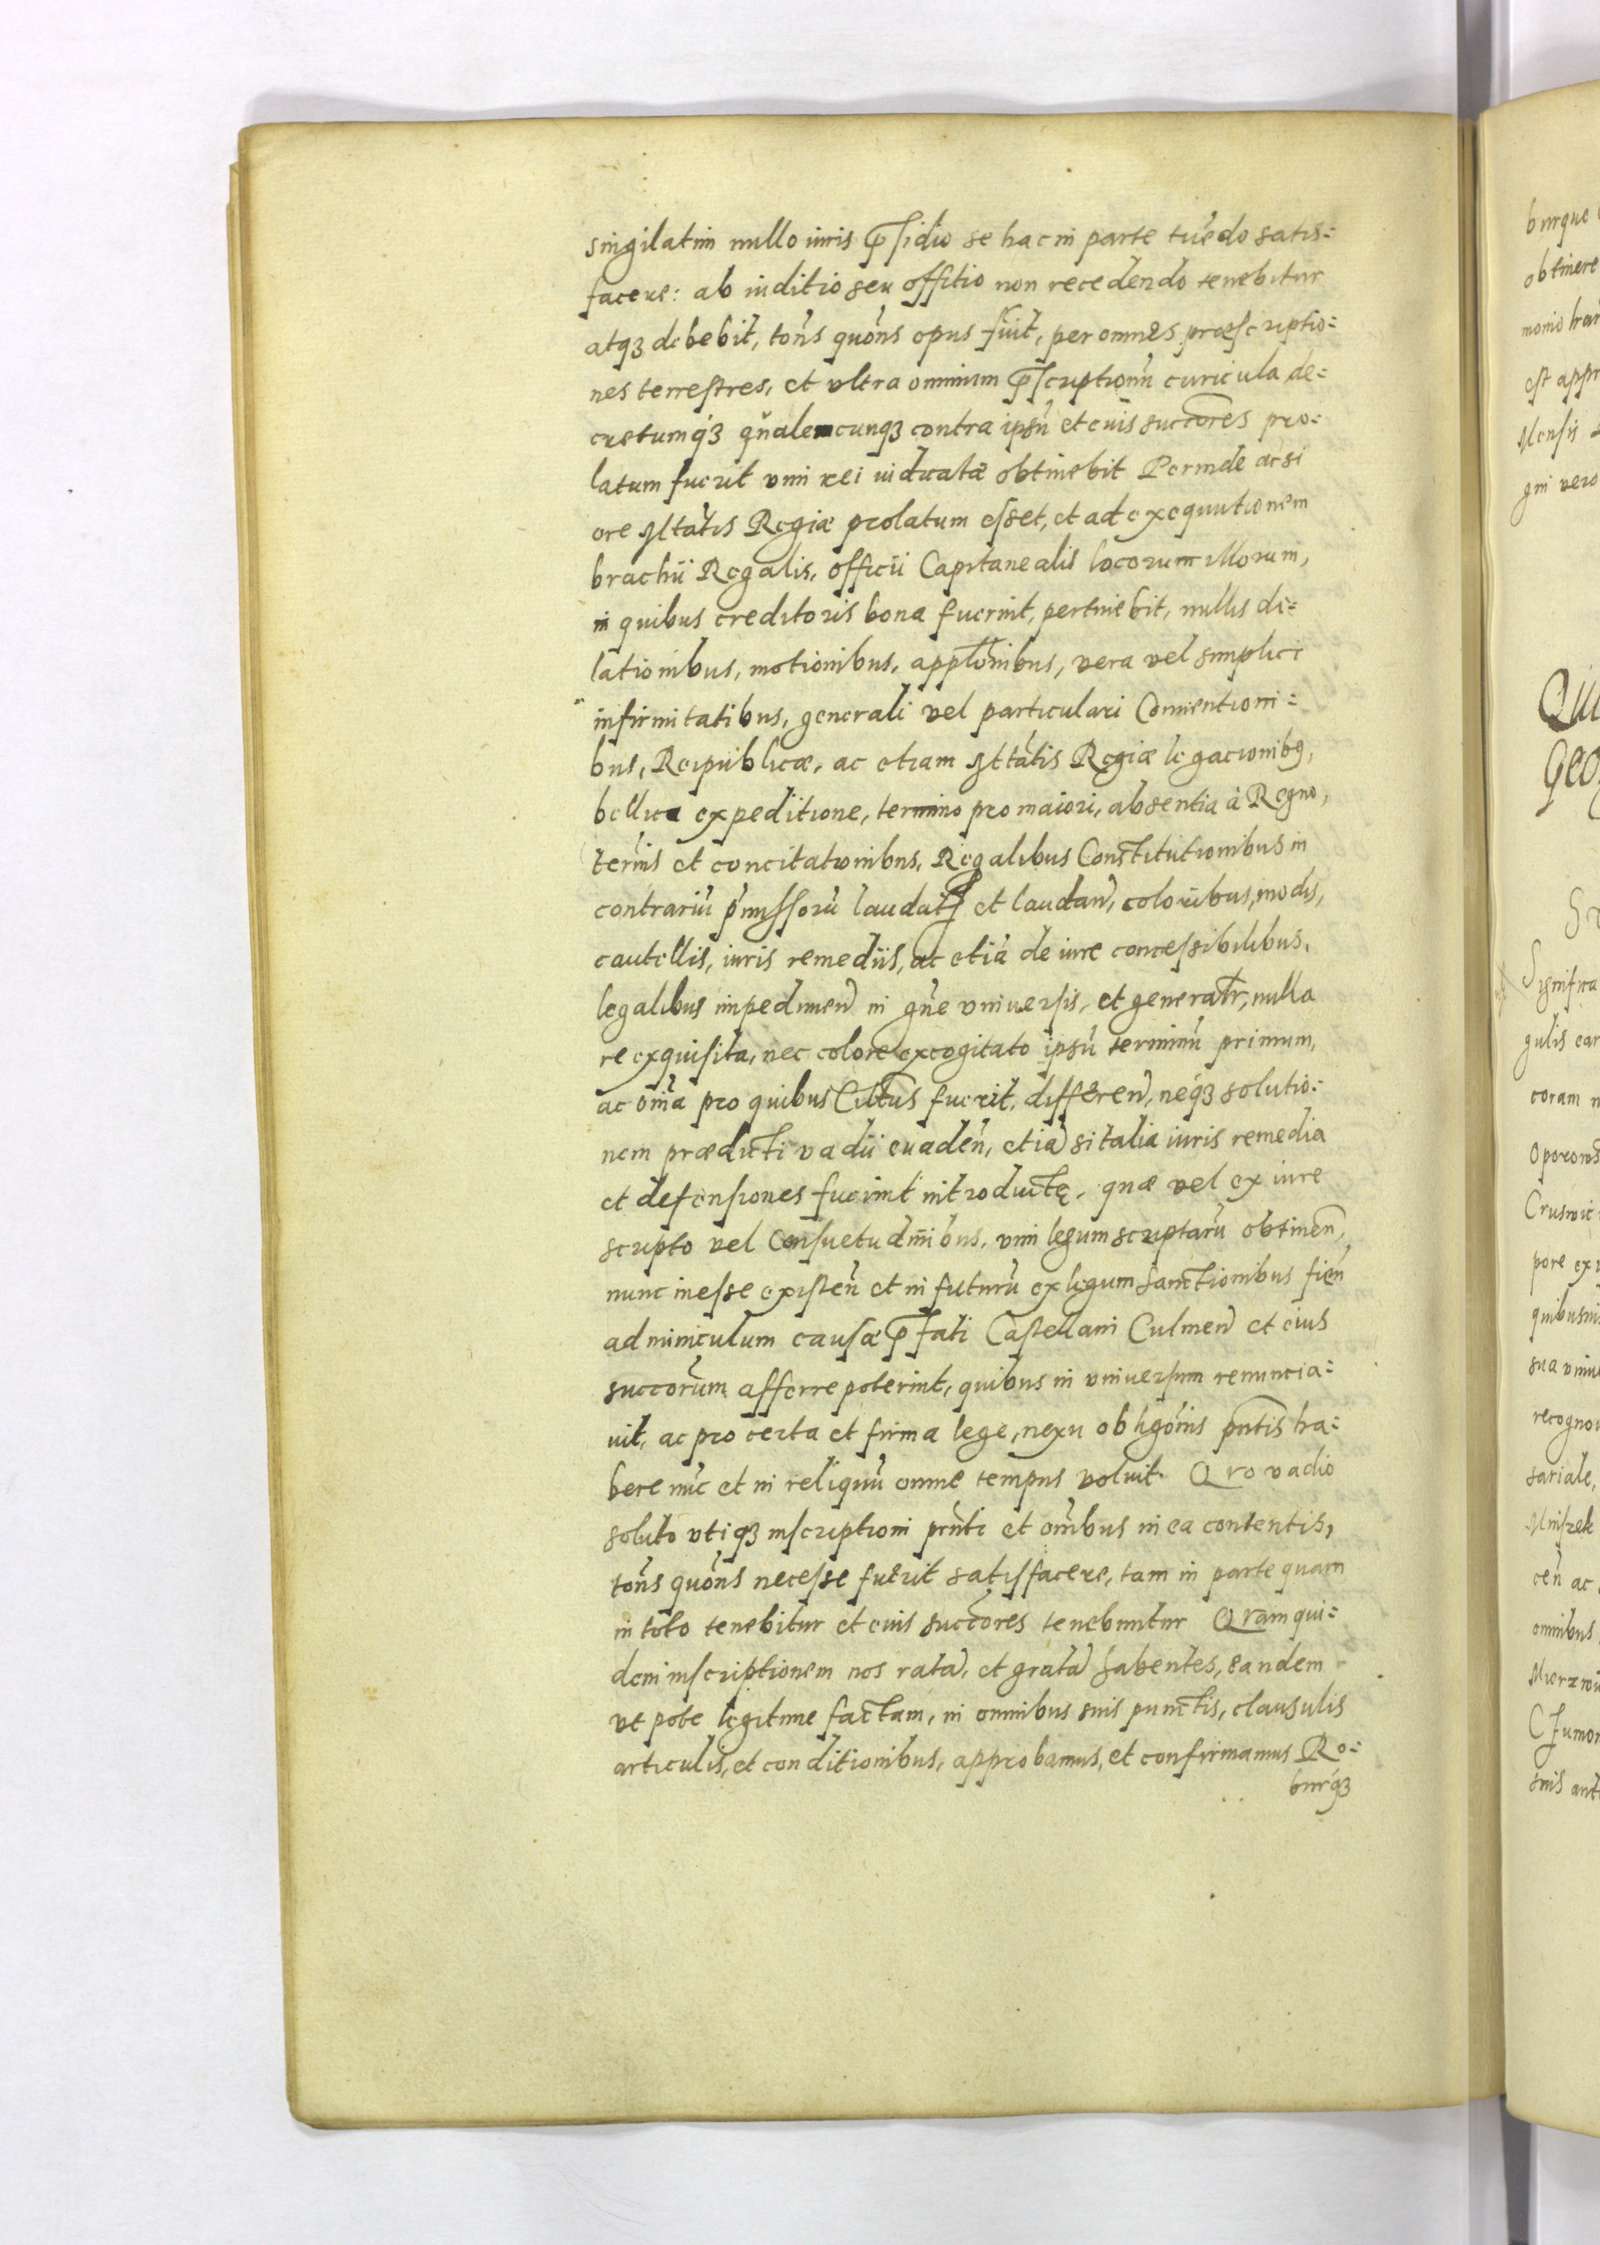 singilatim nullo iuris p̃sidio se hac in parte tuẽdo satis:
facere: ab iuditio seu offitio non recedendo tenebitur
atqꝫ debebit, tot̃ns quot̃ns opus fũit, per omnes præscriptio:
nes terrestres, et vltra omnium p̃scriptionũ curicula, de:
cretumqꝫ qũalemcunqꝫ contra ipsũ et euis succõres pro:
latum fuerit vim rei iudicatæ obtinebit Perinde acsi
ore Mtatis Regiæ prolatum esset, et ad exequutionem
brachii Regalis, officii Capitanealis locorum illorum,
in quibus creditoris bona fuerint, pertinebit, nullis di:
lationibus, motionibus, appl̃onibus, vera vel simplici
infirmitatibus, generali vel particulari Conuentioni:
bus, Reipublicæ, ac etiam Mttatis Regiæ legacionibꝫ,
bellica expeditione, termino pro maiori, absentia à Regno,
term̃is et concitationibus, Regalibus Constitutionibus in
contrariũ p̃missorũ laudatis et laudañ, coloribus, modis,
cautellis, iuris remediis, ac etiã de iure concessibilibus,
legalibus impedimeñ in gñe vniuersis, et generatr̃, nulla
re exquisita, nec colore excogitato ipsũ terminũ primum,
ac om̃a pro quibus Cit̃tus fuerit, differeñ, neqꝫ solutio:
nem prædicti vadii euadeñ, etiã si talia iuris remedia
et defensiones fuerint introductę, quæ vel ex iure
scripto vel Consuetudinibus, vim legum scriptarũ obtineñ,
nunc inesse existeñ et in futurũ ex legum sanctionibus fieñ
adminiculum causæ p̃fati Castellani Culmeñ et eius
succorũm afferre poterint, quibus in vniuersum renuncia:
uit, ac pro certa et firma lege, nexu obligõnis pñtis ha:
bere nũc et in reliquũ omne tempus voluit. Qro vadio
soluto vtiqꝫ inscriptioni prñti et om̃bus in ea contentis,
tot̃ns quot̃ns necesse fuerit satisfacere, tam in parte quam
in toto tenebitur et euis succõres tenebuntur Qram qui:
dem inscriptionem nos ratã, et gratã habentes, eandem
vt pote legitime factam, in omnibus suis punctis, clausulis
articulis, et conditionibus, approbamus, et confirmamus Ro:
burqꝫ